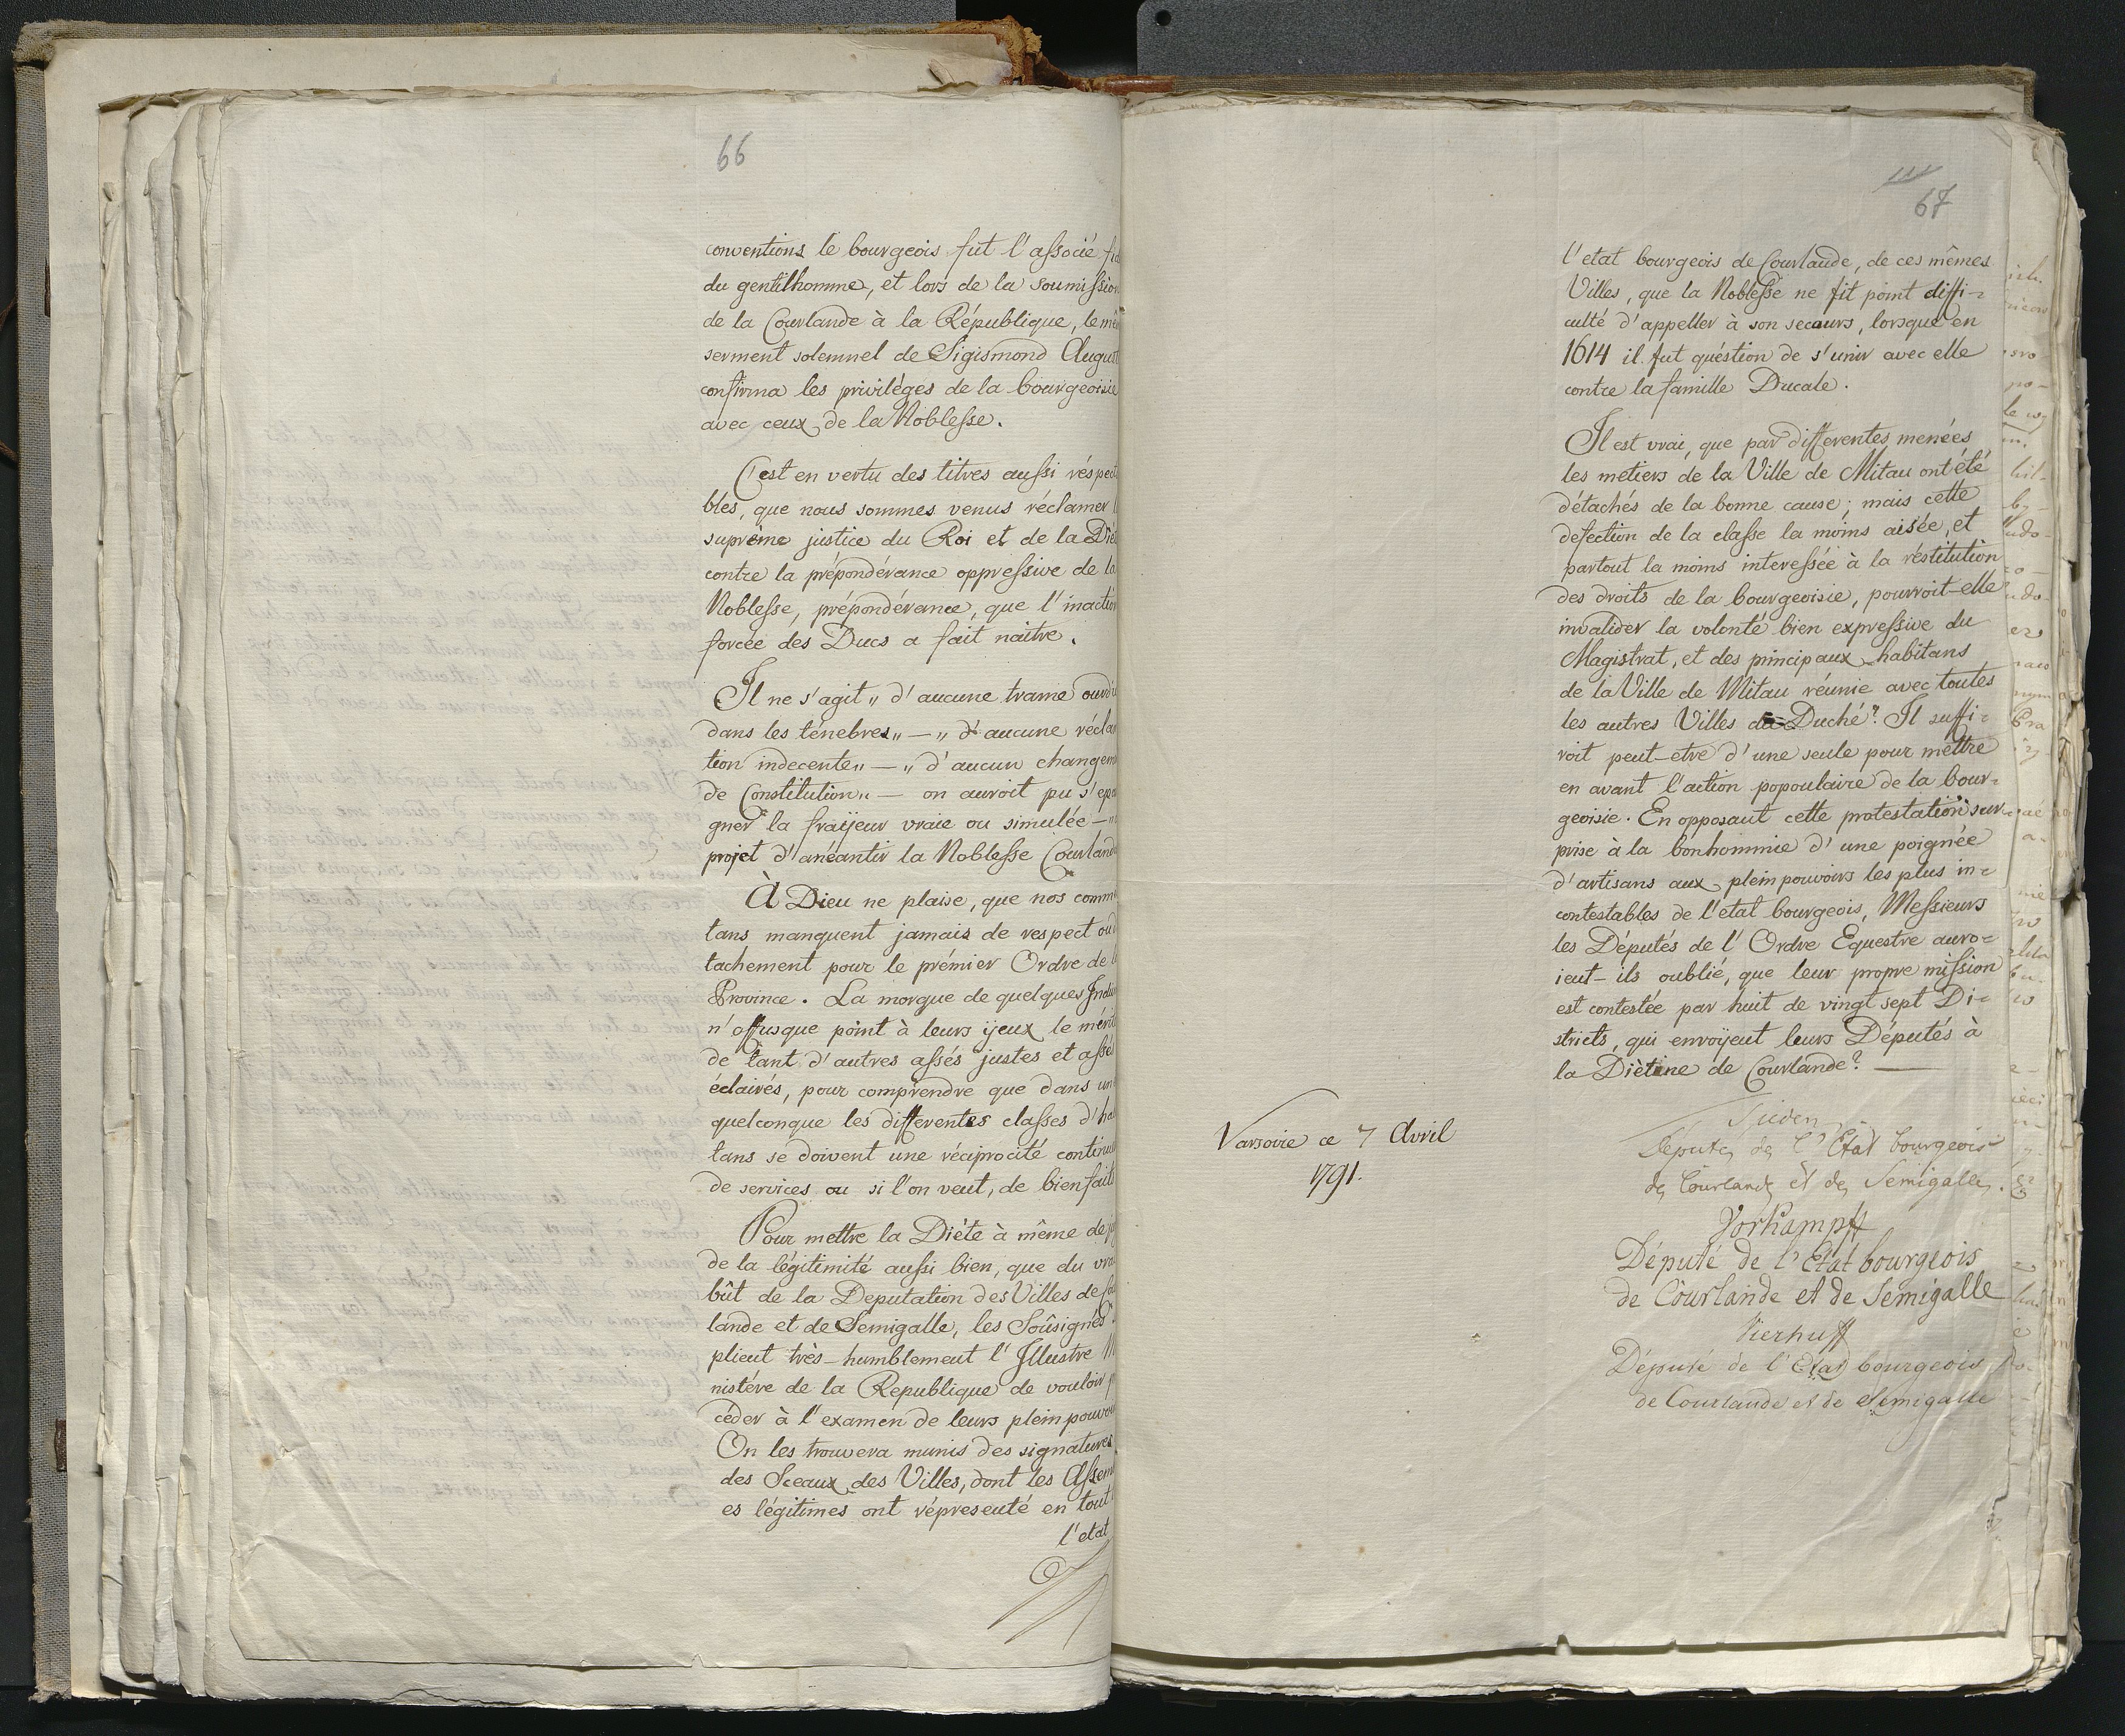 66
conventions le bourgeois fut l'associé
du gentilhomme, et lors de la soumission
de la Courlande à la République, le
serment solemnel de Sigismond August
confirma les privilèges de la bourgeoisie
avec ceux de la Noblesse.
C'est en vertu des titres aussi réspect
bles, que nous sommes venus réclamer
suprème justice du Roi et de la Diè
contre la prépondérance oppressive de la
Noblesse, prépondérance, que l'inaction
forcée des Ducs a fait naitre.
Il ne s'agit „ d'aucune trame ourdie
dans les ténebres„ — „ d'aucune récla
tion indecente„ — „ d'aucun changem
de Constitution„ — on auroit pu s'epa
gner la fraÿeur vraie ou simulée —
projet d'anéantir la Noblesse Courland
À Dieu ne plaise, que nos comm
tans manquent jamais de respect ou
tachement pour le prémier Ordre de
Province. La morgue de quelques Indi
n'offusque point à leurs ÿeux le mérit
de tant d'autres assés justes et assé
éclairés, pour comprendre que dans un
quelconque les differentes classes d'ha
tans se doivent une réciprocité continu
de services ou si l'on veut, de bienfaits
Pour mettre la Diète à même de
de la légitimité aussi bien, que du vra
bût de la Deputation des Villes de
lande et de Semigalle, les Soûsignés
plient très-humblement l'Illustre
nistère de la Republique de vouloir
céder à l'examen de leurs pleinpouvo
On les trouvera munis des signatures
des Sceaux des Villes, dont les Assem
es légitimes ont réprésenté en tout
l'etat
67
l'etat bourgeois de Courlande, de ces mêmes
Villes, que la Noblesse ne fit point diffi-
culté d'appeller à son secours, lorsque en
1614 il fut quéstion de s'unir avec elle
contre la famille Ducale.
Il est vrai, que par differentes menées
les metiers de la Ville de Mitau ont été
détachés de la bonne cause; mais cette
defection de la classe la moins aisée, et
partout la moins interessée à la réstitution
des droits de la bourgeoisie, pourroit-elle
invalider la volonté bien expressive du
Magistrat, et des principaux habitans
de la Ville de Mitau réunie avec toutes
les autres Villes du Duché? Il suffi-
roit peut-etre d'une seule pour mettre
en avant l'action popoulaire de la bour-
geoisie. En opposant cette protestation sur-
prise à la bonhommie d'une poignée
d'artisans aux pleinpouvoirs les plus in-
contestables de l'etat bourgeois, Messieurs
les Députés de l'Ordre Equestre auro-
ient-ils oublié, que leur propre mission
est contestée par huit de vingt sept Di-
stricts, qui envoÿent leurs Députés à
la Diètine de Courlande? —
Varsovie ce 7 Avril
1791.
Député de l'Etat bourgeois
de Courlande et de Semigalle.
Vorkampff
Député de l'Etat bourgeois
de Courlande et de Sémigalle
Vierhuff
Député de l'Etat bourgeois
de Courlande et de Semigalle